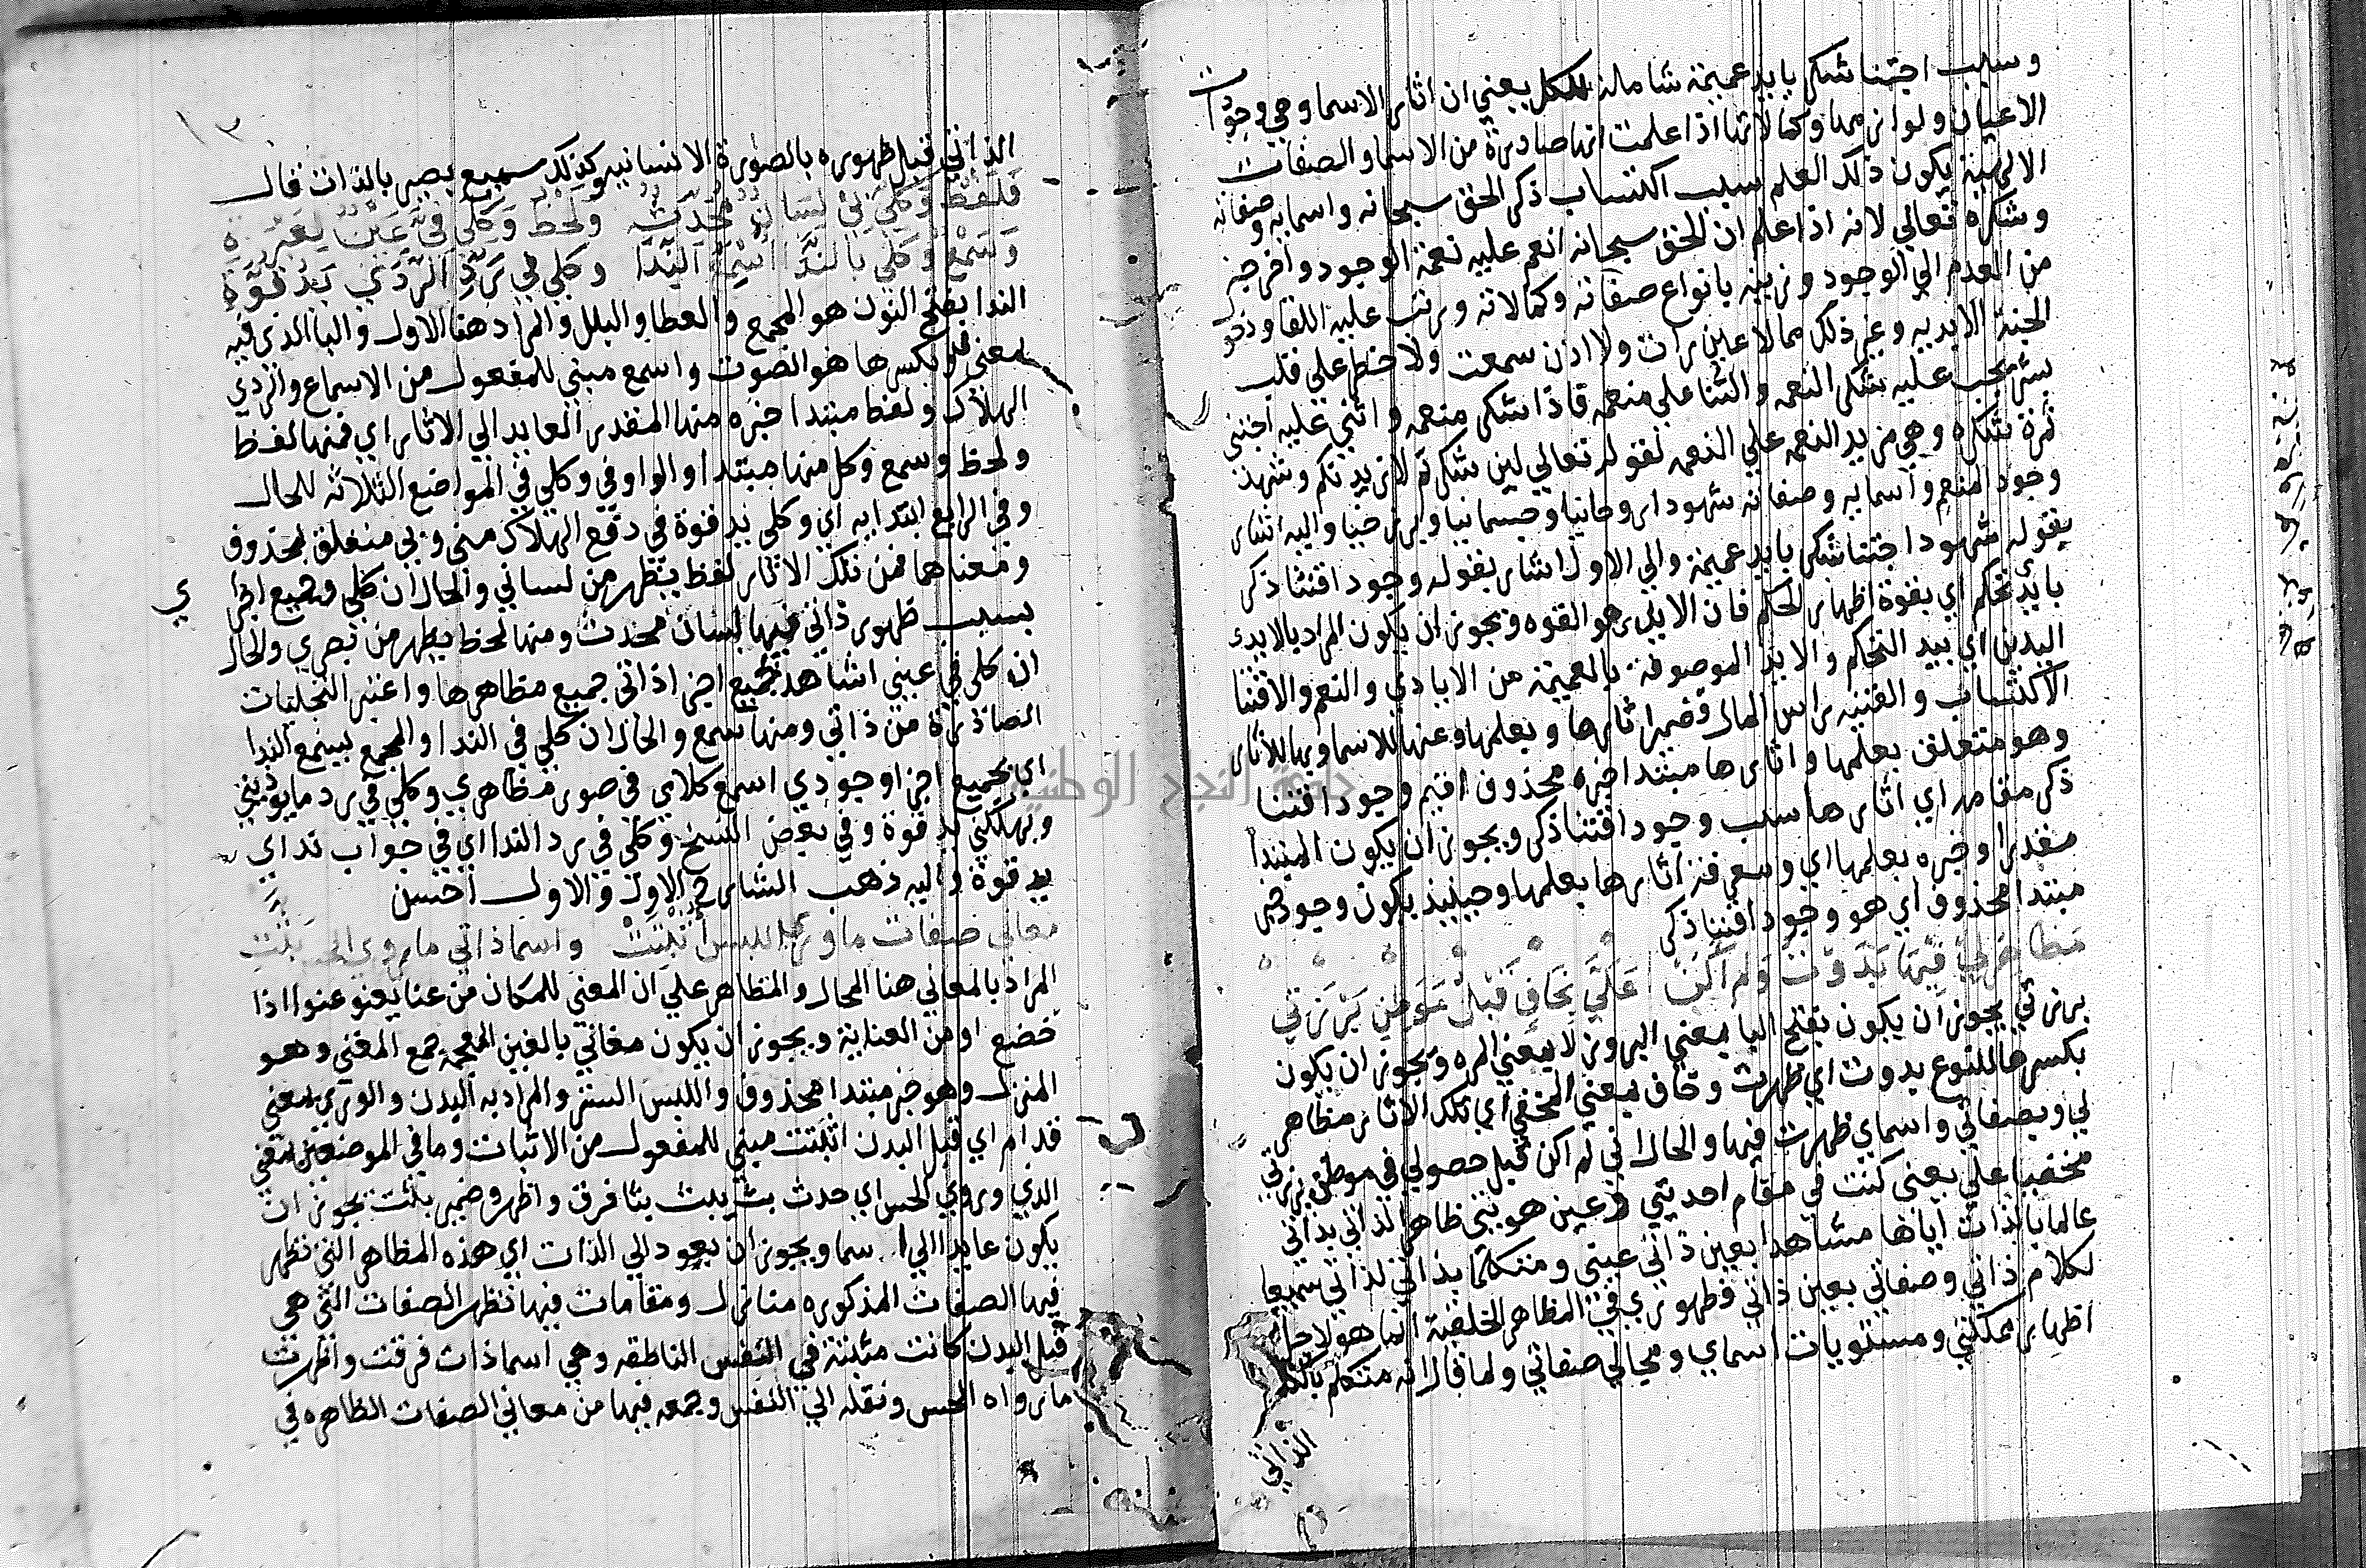 وسبب اجتنا شكر بايد عميمة شاملة للكل يعني ان اثار الاسما وهي وجودات
الاعيان ولوازمها وكمالاتها اذا علمت انها صادرة من الاسما والصفات
الالهية يكون ذلك العلم سبب اكتساب ذكر الحق سبحانه واسمايه وصفاته
وشكره تعالي لانه اذا علم ان الحق سبحانه انعم عليه نعمة الوجود واخرجه
من العدم الي الوجود وزينه بانواع صفاته وكمالاته ورتب عليه اللقا ودخول
الجنة الابديه وغير ذلك مما لا عين رات ولا اذن سمعت ولا خطر علي قلب
بشر يجب عليه شكر النعمه والثنا علي منعمه فاذا شكر منعمه واثني عليه اجتني
ثمرة شكره وهي مزيد النعمه علي النعمه لقوله تعالي لين شكرتم لازيدنكم وشهد
وجود المنعم واسمايه وصفاته شهودا روحانيا وجسمانيا وبرزخيا واليه اشار
بقوله شهود اجتنا شكر بايد عميمة والي الاول اشار بقوله وجود اقتنا ذكر
بايد تحكم اي بقوة اظهار الحكم فان الايد هو القوه ويجوز ان يكون المراد بالايد
اليدين اي بيد التحكم والايد الموصوفة بالعميمة من الايادي والنعم والاقتنا
الاكتساب والقنيه راس المال وضمير اثارها وبعلمها وعنها للاسما وبها للاثار
وهو متعلق بعلمها واثارها مبتدا خبره محذوف اقيم وجود اقتنا
ذكر مقامه اي اثارها سبب وجود اقتنا ذكر ويجوز ان يكون المبتدا
مقدرا وخبره بعلمها اي ومعرفة اثارها بعلمها وحينيذ يكون وجود خبر
مبتدا محذوف اي هو وجود اقتنا ذكر
مظاهر لي فيها بدوت ولم اكن علي بخاف قبل موطن برزتي
برزتي يجوز ان يكون بفتح البا بمعني البروز لا بمعني المره ويجوز ان يكون
بكسرها للنوع بدوت اي ظهرت وخاف بمعني المخفي اي تلك الاثار مظاهر
لي وبصفاتي واسماي ظهرت فيها والحال اني لم اكن قبل حصولي في موطن برزتي
مخفيا علي يعني كنت في مقام احديتي وعين هويتي ظاهرا لذاتي بذاتي
عالما بالذات اياها مشاهدا بعين ذاتي عيني ومتكلما بذاتي لذاتي سميعا
لكلام ذاتي وصفاتي بعين ذاتي وظهوري في المظاهر الخلقية انما هو لاجل
اظهار مملكتي ومستويات اسماي ومجالي صفاتي ولما قال انه متكلم بالكلام
الذاتي
الذاتي قبل ظهوره بالصورة الانسانيه وكذلك سميع بصير بالذات قال
فلفظ وكلي لي لسان محدث ولحظ وكلي في عين لعبرة
وسمع وكلي بالندا اسمع الندا وكلي في رد الردي يد قوة
الندا بفتح النون هو المجمع والعطا والبلل والمراد هنا الاول والبا الذي فيه
بمعني في وبكسرها هو الصوت واسمع مبني للمفعول من الاسماع والردي
الهلاك ولفظ مبتدا خبره منها المقدر العايد الي الاثار اي فمنها لفظ
ولحظ وسمع وكل منها مبتدا والواو في وكلي في المواضع الثلاثه للحال
وفي الرابع ابتدايه اي وكلي يد قوة في دفع الهلاك مني وبي متعلق بمحذوف
ومعناهما فمن تلك الاثار لفظ يظهر من لساني والحال ان كلي وجميع اجزاي
بسبب ظهور ذاتي فيها لسان محدث ومنها لحظ يظهر من بصري والحال
ان كلي في عيني اشاهد بجميع اجزا ذاتي جميع مظاهرها واعتبر التجليات
الصادرة من ذاتي ومنها سمع والحال ان كلي في الندا والمجمع يسمع الندا
اي بجميع اجزا وجودي اسمع كلامي في صور مظاهري وكلي في رد ما يوذيني
ويهلكني يد قوة وفي بعض النسخ وكلي في رد الندا اي في جواب نداي
يد قوة واليه ذهب الشارح الاول والاول احسن
معاني صفات ما ورا اللبس اثبتت واسما ذاتي ما روي الحس بثت
المراد بالمعاني هنا المحال والمظاهر علي ان المعني للمكان من عنا يعنو عنوا اذا
خضع او من العناية ويجوز ان يكون مغاني بالغين المعجمة جمع المغني وهو
المنزل وهو خبر مبتدا محذوف واللبس الستر والمراد به البدن والورا بمعني
قدام اي قبل البدن اثبتت مبني للمفعول من الاثبات وما في الموضعين بمعني
الذي وروي الحس اي حدث بث يبث بثا فرق واظهر وضمير بثت يجوز ان
يكون عايدا الي الاسما ويجوز ان يعود الي الذات اي هذه المظاهر التي تظهر
فيها الصفات المذكوره منازل ومقامات فيها تظهر الصفات التي هي
قبل البدن كانت مثبتة في النفس الناطقه وهي اسما ذات فرقت واظهرت
ما رواه الحس ونقله الي النفس وجمعه فيها من معاني الصفات الظاهره في
جامعة النجاح الوطنية